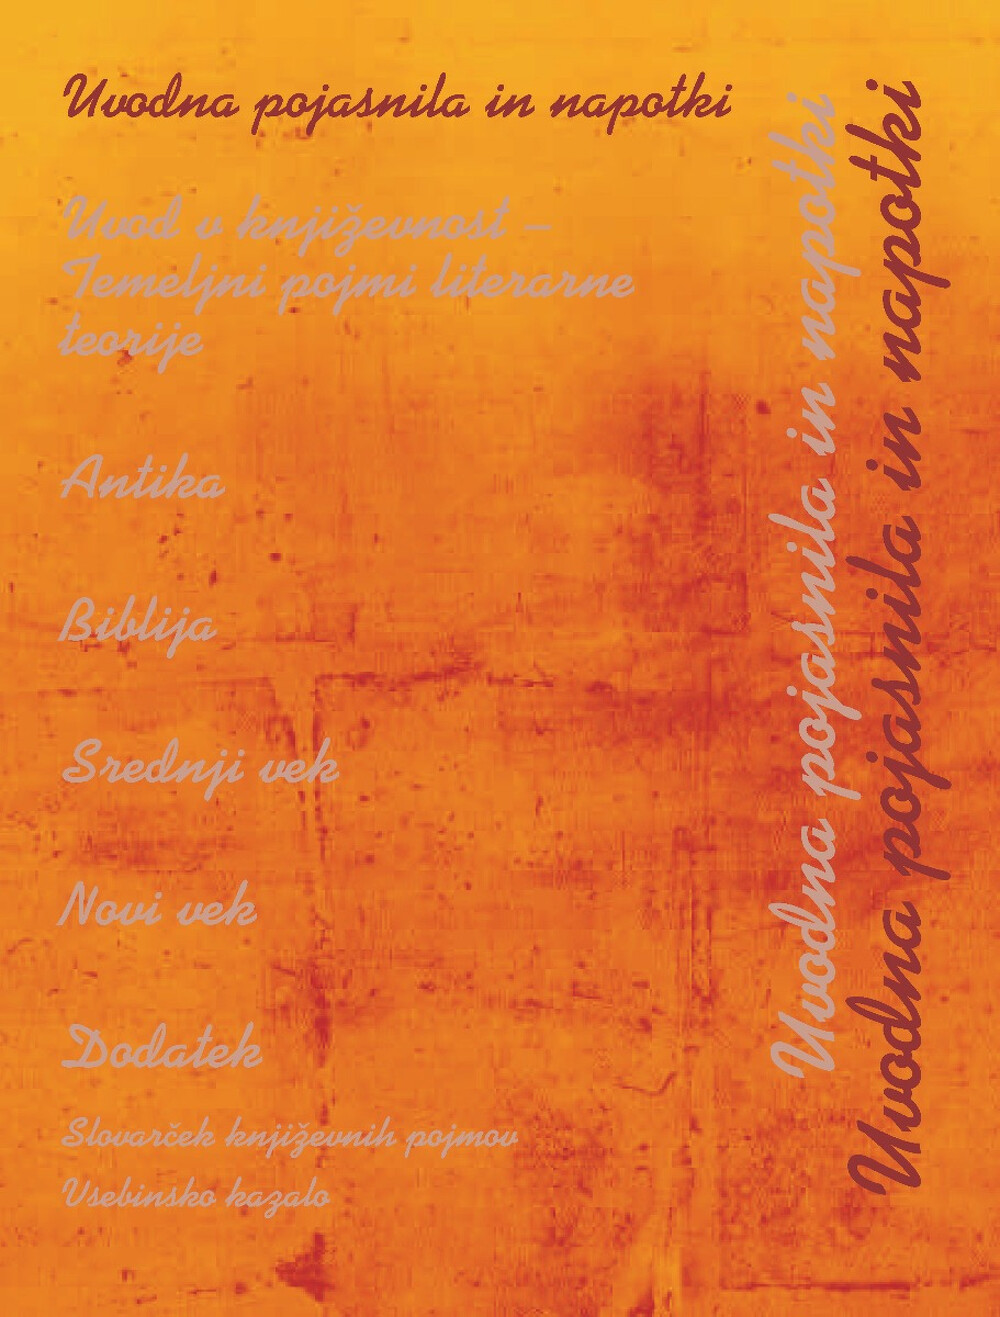 Uvodna pojasnila in napotki
Uvod v književnost –
Temeljni pojmi literarne
teorije
Antika
Biblija
Srednji vek
Novi vek
Dodatek
Slovarček književnih pojmov
Vsebinsko kazalo
Uvodna pojasnila in napotki
Uvodna pojasnila in napotki